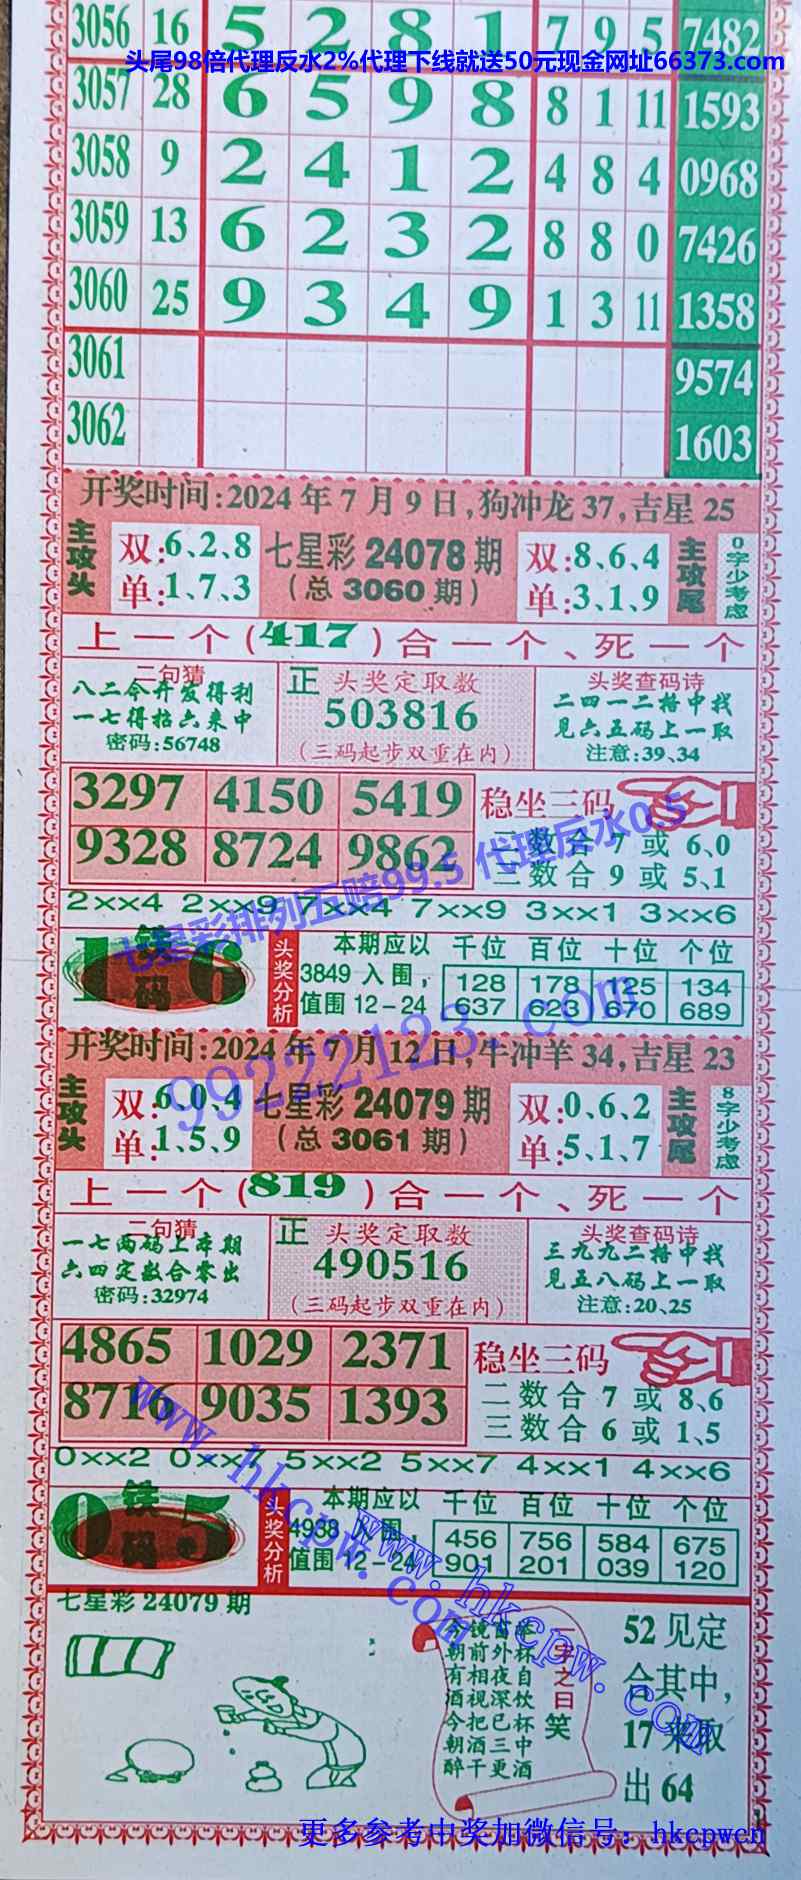 3056 16 5 2 8 1 7 9 5 7482
头尾98倍代理反水2%代理下线就送50元现金网址66373.com
3057 28 6 5 9 8 8 1 11 1593
3058 9 2 4 1 2 4 8 4 0968
3059 13 6 2 3 2 8 8 0 7426
3060 25 9 3 4 9 1 3 11 1358
3061 9574
3062 1603
开奖时间:2024年7月9日,狗冲龙37,吉星25
主攻头
双:6、2、8
单:1、7、3
七星彩 24078 期
(总 3060 期)
双:8、6、4
单:3、1、9
主攻尾
0字少考虑
上一个(417)合一个、死一个
二句猜
八二今开发得利
一七得拾六来中
密码:56748
正 头奖定取数
503816
(三码起步双重在内)
头奖查码诗
二四一二格中找
见六五码上一取
注意:39、34
3297 4150 5419
9328 8724 9862
稳坐三码
二数合 7 或 6、0
三数合 9 或 5、1
七星彩排列五赔99.5 代理反水0.5
2××4 2××9 7××4 7××9 3××1 3××6
1 铁码 6
头奖分析
本期应以
3849 入围,
值围 12-24
千位 百位 十位 个位
128 178 125 134
637 623 670 689
99222123.com
开奖时间:2024年7月12日,牛冲羊34,吉星23
主攻头
双:6、0、4
单:1、5、9
七星彩 24079 期
(总 3061 期)
双:0、6、2
单:5、1、7
主攻尾
8字少考虑
上一个(819)合一个、死一个
二句猜
一七两码上本期
六四定数合零出
密码:32974
正 头奖定取数
490516
(三码起步双重在内)
头奖查码诗
三九九二格中找
见五八码上一取
注意:20、25
4865 1029 2371
8716 9035 1393
稳坐三码
二数合 7 或 8、6
三数合 6 或 1、5
www.hkcpw.com
0××2 0××7 5××2 5××7 4××1 4××6
0 铁码 5
头奖分析
本期应以
4938 入围,
值围 12-24
千位 百位 十位 个位
456 756 584 675
901 201 039 120
www.hkcpw.com
七星彩 24079 期
一字之曰 笑
杯自饮杯中酒
外夜深已三更
镜前相视把酒干
今朝有酒今朝醉
52 见定
合其中,
17 来取
出 64
更多参考中奖加微信号：hkcpwcn